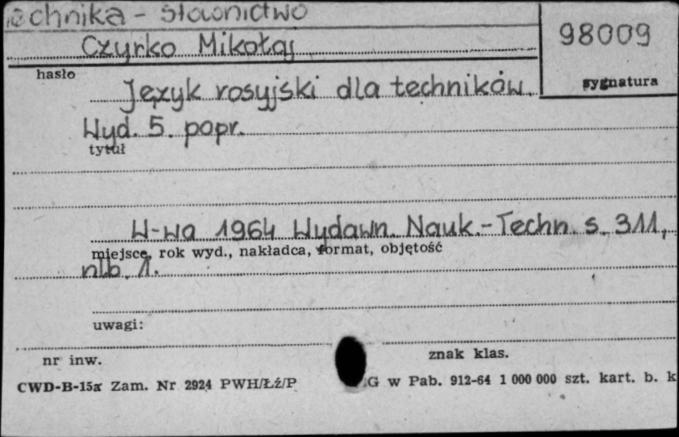 Technika - słownictwo
Czyrko Mikołaj
98009
hasło
sygnatura
Język rosyjski dla techników.
Wyd. 5. popr.
tytuł
W-wa 1964 Wydawn. Nauk.-Techn. s. 311,
miejsce, rok wyd., nakładca, format, objętość
nlb. 1.
uwagi:
nr inw.
znak klas.
CWD-B-15a Zam. Nr 2924 PWH/Łź/P
G w Pab. 912-64 1 000 000 szt. kart. b. k